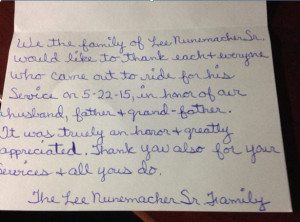 We the family of Lee Nunemacher Sr.
would like to thank each & everyone
who came out to ride for his
Service on 5-22-15, in honor of our
husband, father & grand-father.
It was truely an honor & greatly
appreciated. Thank you also for your
services & all yous do.
The Lee Nunemacher Sr Family